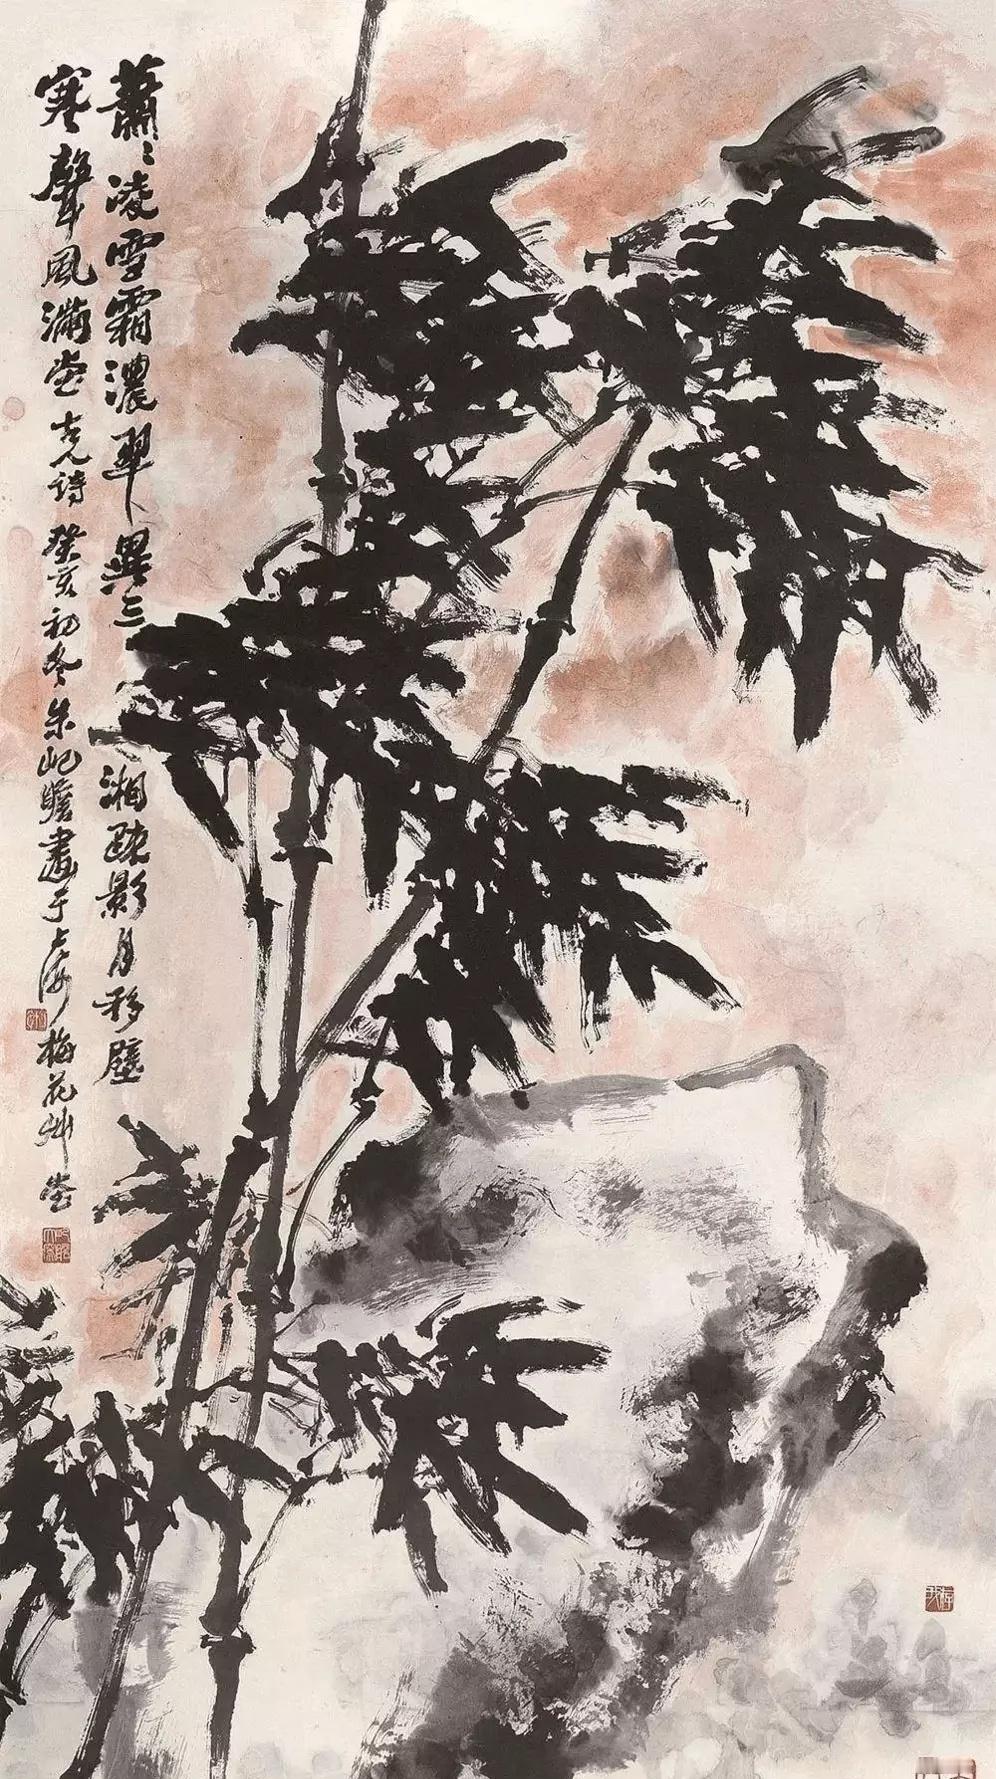 蕭〻凌雪霜濃翠異三湘疎影月移壁
寒聲風滿堂 詩 癸亥初冬朱屺瞻畫于上海梅花艸堂